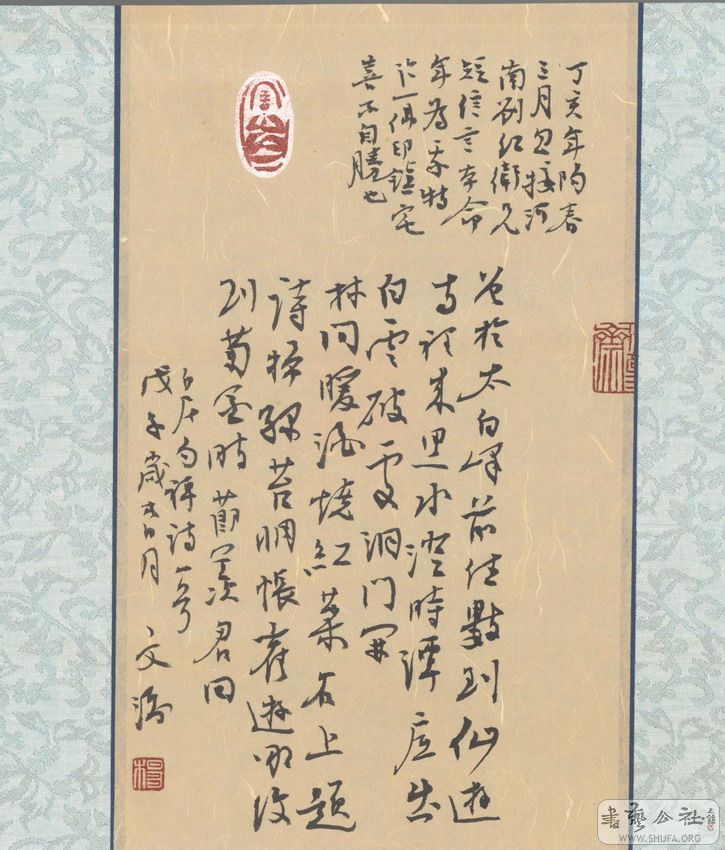 丁亥年陽春
三月忽接河
南劉红衛兄
短信言本命
年為我特
作一佛印鎮宅
喜不自勝也
曾於太白峰前住數到仙遊
寺裡來黑水澄時潭底出
白雲破處洞門開
林间暖酒燒紅葉石上題
詩掃綠苔惆悵舊遊那復
到菊花時節羡君回
白居易禪詩一首
戊子歲 月 文濤
楊
書藝公社
WWW.SHUFA.ORG